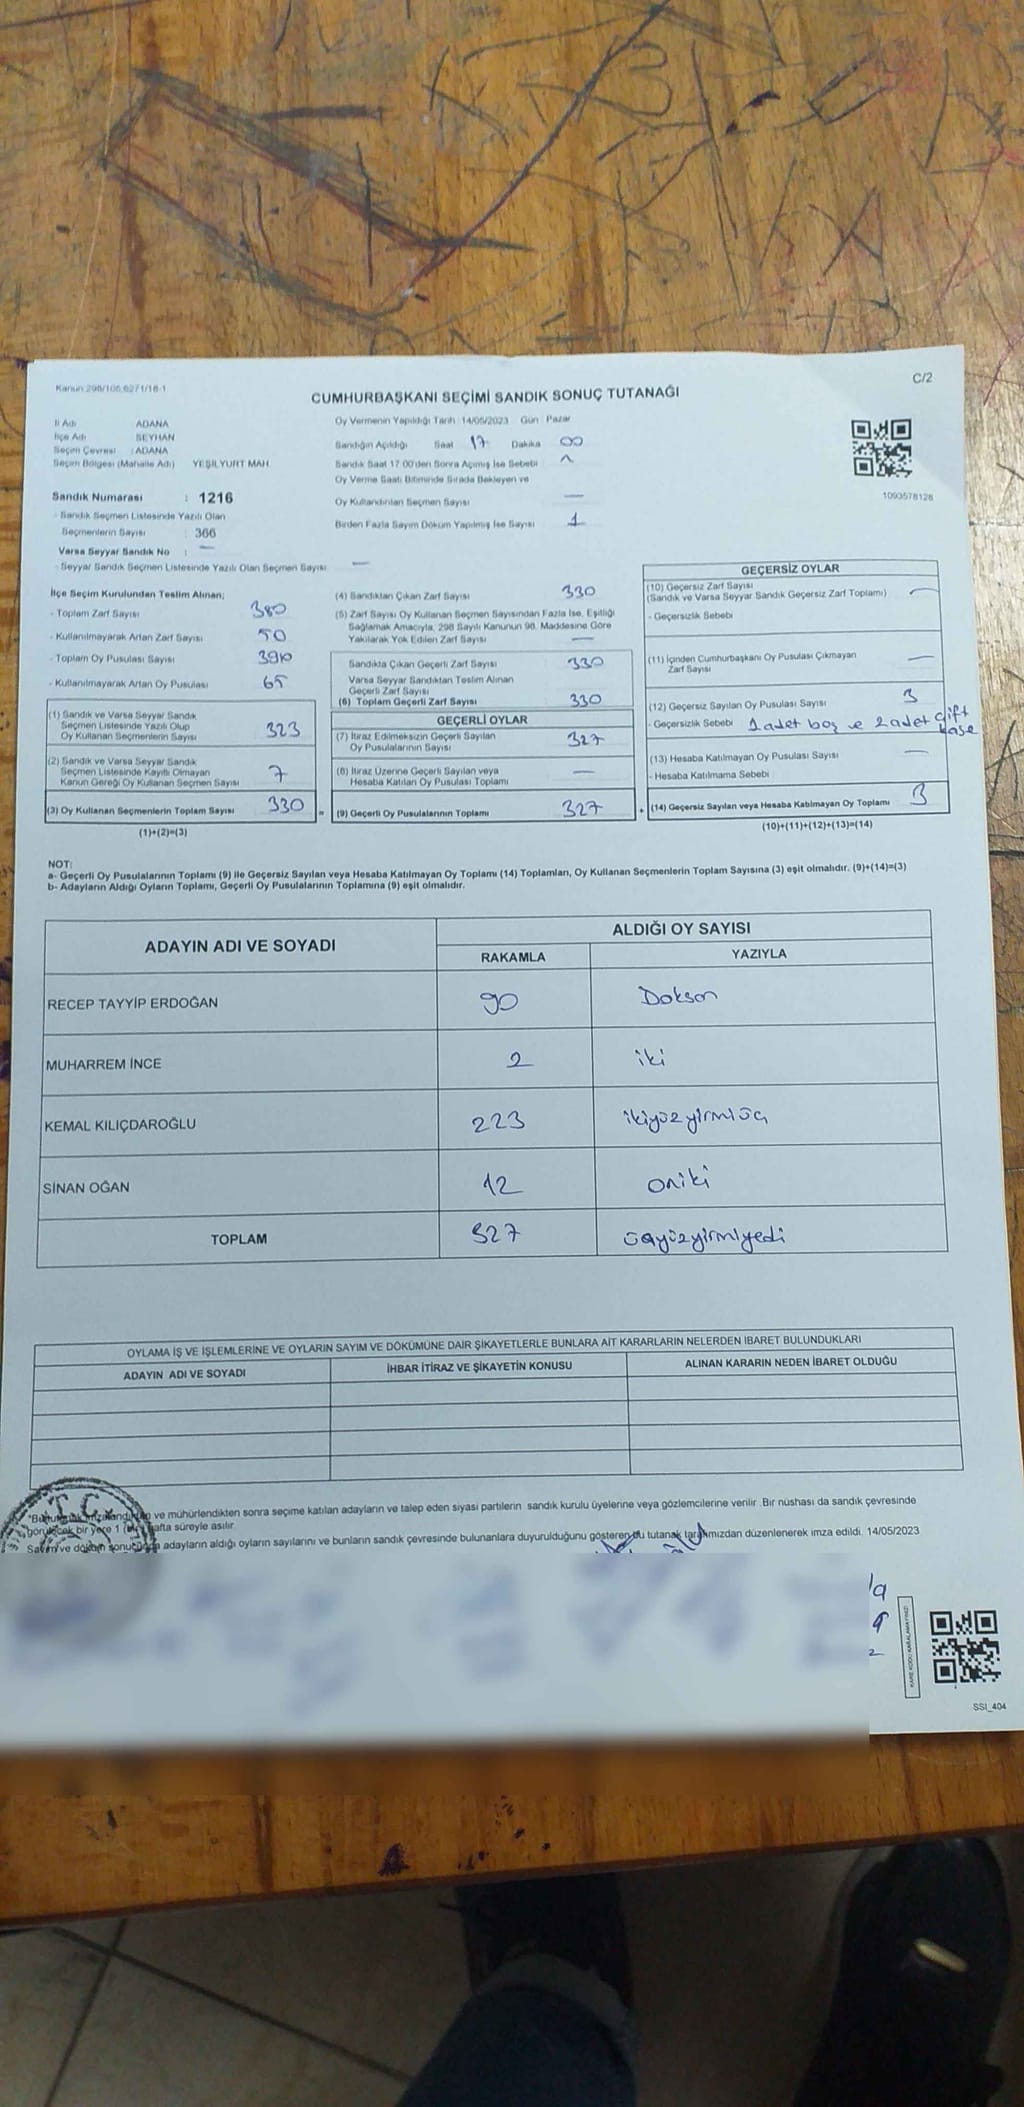 Kanun 298/105,6271/18-1
C/2
CUMHURBAŞKANI SEÇİMİ SANDIK SONUÇ TUTANAĞI
İl Adı : ADANA
İlçe Adı : SEYHAN
Seçim Çevresi : ADANA
Seçim Bölgesi (Mahalle Adı) YEŞİLYURT MAH.
Sandık Numarası : 1216
- Sandık Seçmen Listesinde Yazılı Olan
Seçmenlerin Sayısı : 366
Varsa Seyyar Sandık No : —
- Seyyar Sandık Seçmen Listesinde Yazılı Olan Seçmen Sayısı —
Oy Vermenin Yapıldığı Tarih :14/05/2023 Gün : Pazar
Sandığın Açıldığı Saat 17 Dakika 00
Sandık Saat 17:00'den Sonra Açımış İse Sebebi
Oy Verme Saati Bitiminde Sırada Bekleyen ve
Oy Kullandırılan Seçmen Sayısı —
Birden Fazla Sayım Döküm Yapılmış İse Sayısı 1
1093578128
İlçe Seçim Kurulundan Teslim Alınan;
- Toplam Zarf Sayısı 380
- Kullanılmayarak Artan Zarf Sayısı 50
- Toplam Oy Pusulası Sayısı
- Kullanılmayarak Artan Oy Pusulası 65
(1) Sandık ve Varsa Seyyar Sandık
Seçmen Listesinde Yazılı Olup
Oy Kullanan Seçmenlerin Sayısı 323
(2) Sandık ve Varsa Seyyar Sandık
Seçmen Listesinde Kayıtlı Olmayan
Kanun Gereği Oy Kullanan Seçmen Sayısı 7
(3) Oy Kullanan Seçmenlerin Toplam Sayısı 330
(1)+(2)=(3)
(4) Sandıktan Çıkan Zarf Sayısı 330
(5) Zarf Sayısı Oy Kullanan Seçmen Sayısından Fazla İse, Eşitliği
Sağlamak Amacıyla, 298 Sayılı Kanunun 98. Maddesine Göre
Yakılarak Yok Edilen Zarf Sayısı —
Sandıkta Çıkan Geçerli Zarf Sayısı 330
Varsa Seyyar Sandıktan Teslim Alınan
Geçerli Zarf Sayısı
(6) Toplam Geçerli Zarf Sayısı 330
GEÇERLİ OYLAR
(7) İtiraz Edilmeksizin Geçerli Sayılan
Oy Pusulalarının Sayısı 327
(8) İtiraz Üzerine Geçerli Sayılan veya
Hesaba Katılan Oy Pusulası Toplamı —
= (9) Geçerli Oy Pusulalarının Toplamı 327 +
GEÇERSİZ OYLAR
(10) Geçersiz Zarf Sayısı
(Sandık ve Varsa Seyyar Sandık Geçersiz Zarf Toplamı) —
- Geçersizlik Sebebi
(11) İçinden Cumhurbaşkanı Oy Pusulası Çıkmayan
Zarf Sayısı —
(12) Geçersiz Sayılan Oy Pusulası Sayısı 3
- Geçersizlik Sebebi 1 adet boş ve 2 adet çift
kaşe
(13) Hesaba Katılmayan Oy Pusulası Sayısı —
- Hesaba Katılmama Sebebi
(14) Geçersiz Sayılan veya Hesaba Katılmayan Oy Toplamı 3
(10)+(11)+(12)+(13)=(14)
NOT:
a- Geçerli Oy Pusulalarının Toplamı (9) ile Geçersiz Sayılan veya Hesaba Katılmayan Oy Toplamı (14) Toplamları, Oy Kullanan Seçmenlerin Toplam Sayısına (3) eşit olmalıdır. (9)+(14)=(3)
b- Adayların Aldığı Oyların Toplamı, Geçerli Oy Pusulalarının Toplamına (9) eşit olmalıdır.
ADAYIN ADI VE SOYADI ALDIĞI OY SAYISI
RAKAMLA YAZIYLA
RECEP TAYYİP ERDOĞAN 90 Doksan
MUHARREM İNCE 2 iki
KEMAL KILIÇDAROĞLU 223 ikiyüzyirmiüç
SİNAN OĞAN 12 oniki
TOPLAM 327 üçyüzyirmiyedi
OYLAMA İŞ VE İŞLEMLERİNE VE OYLARIN SAYIM VE DÖKÜMÜNE DAİR ŞİKAYETLERLE BUNLARA AİT KARARLARIN NELERDEN İBARET BULUNDUKLARI
ADAYIN ADI VE SOYADI İHBAR İTİRAZ VE ŞİKAYETİN KONUSU ALINAN KARARIN NEDEN İBARET OLDUĞU
T.C.
ve mühürlendikten sonra seçime katılan adayların ve talep eden siyasi partilerin sandık kurulu üyelerine veya gözlemcilerine verilir .Bir nüshası da sandık çevresinde
görülecek bir yere 1 hafta süreyle asılır.
Sayım ve döküm sonucunda adayların aldığı oyların sayılarını ve bunların sandık çevresinde bulunanlara duyurulduğunu gösteren bu tutanak tarafımızdan düzenlenerek imza edildi. 14/05/2023
KARE KODU KARALAMAYINIZ!
SSI_404